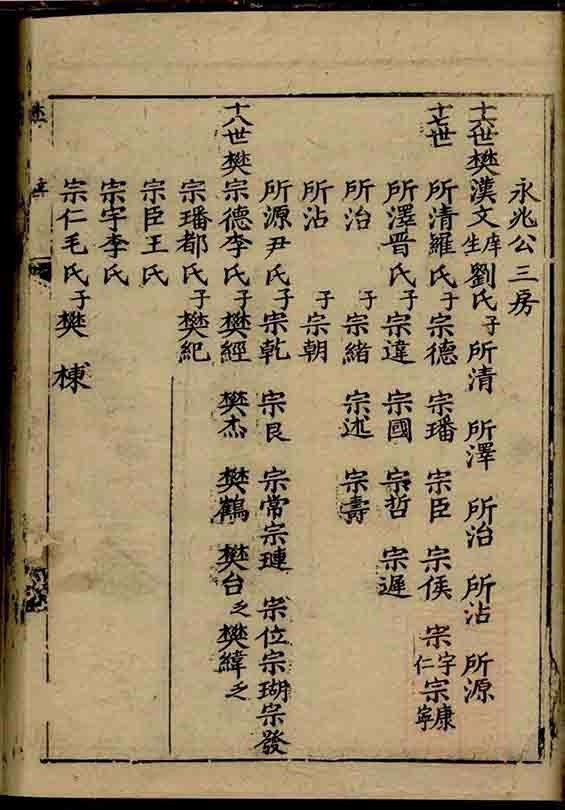 永兆公三房
十六世樊漢文庠生劉氏子所清 所澤 所治 所沾 所源
十七世 所清羅氏子宗德 宗璠 宗臣 宗俟 宗字 宗仁 宗康 宗寧
所澤晋氏子宗違 宗國 宗哲 宗遲
所治 子宗緒 宗述 宗壽
所沾 子宗朝
所源尹氏子宗乾 宗艮 宗常宗璉 宗位宗瑚宗發
十八世樊宗德李氏子樊經 樊杰 樊鶴 樊台乏樊緯乏
宗璠都氏子樊紀
宗臣王氏
宗字李氏
宗仁毛氏子樊棟